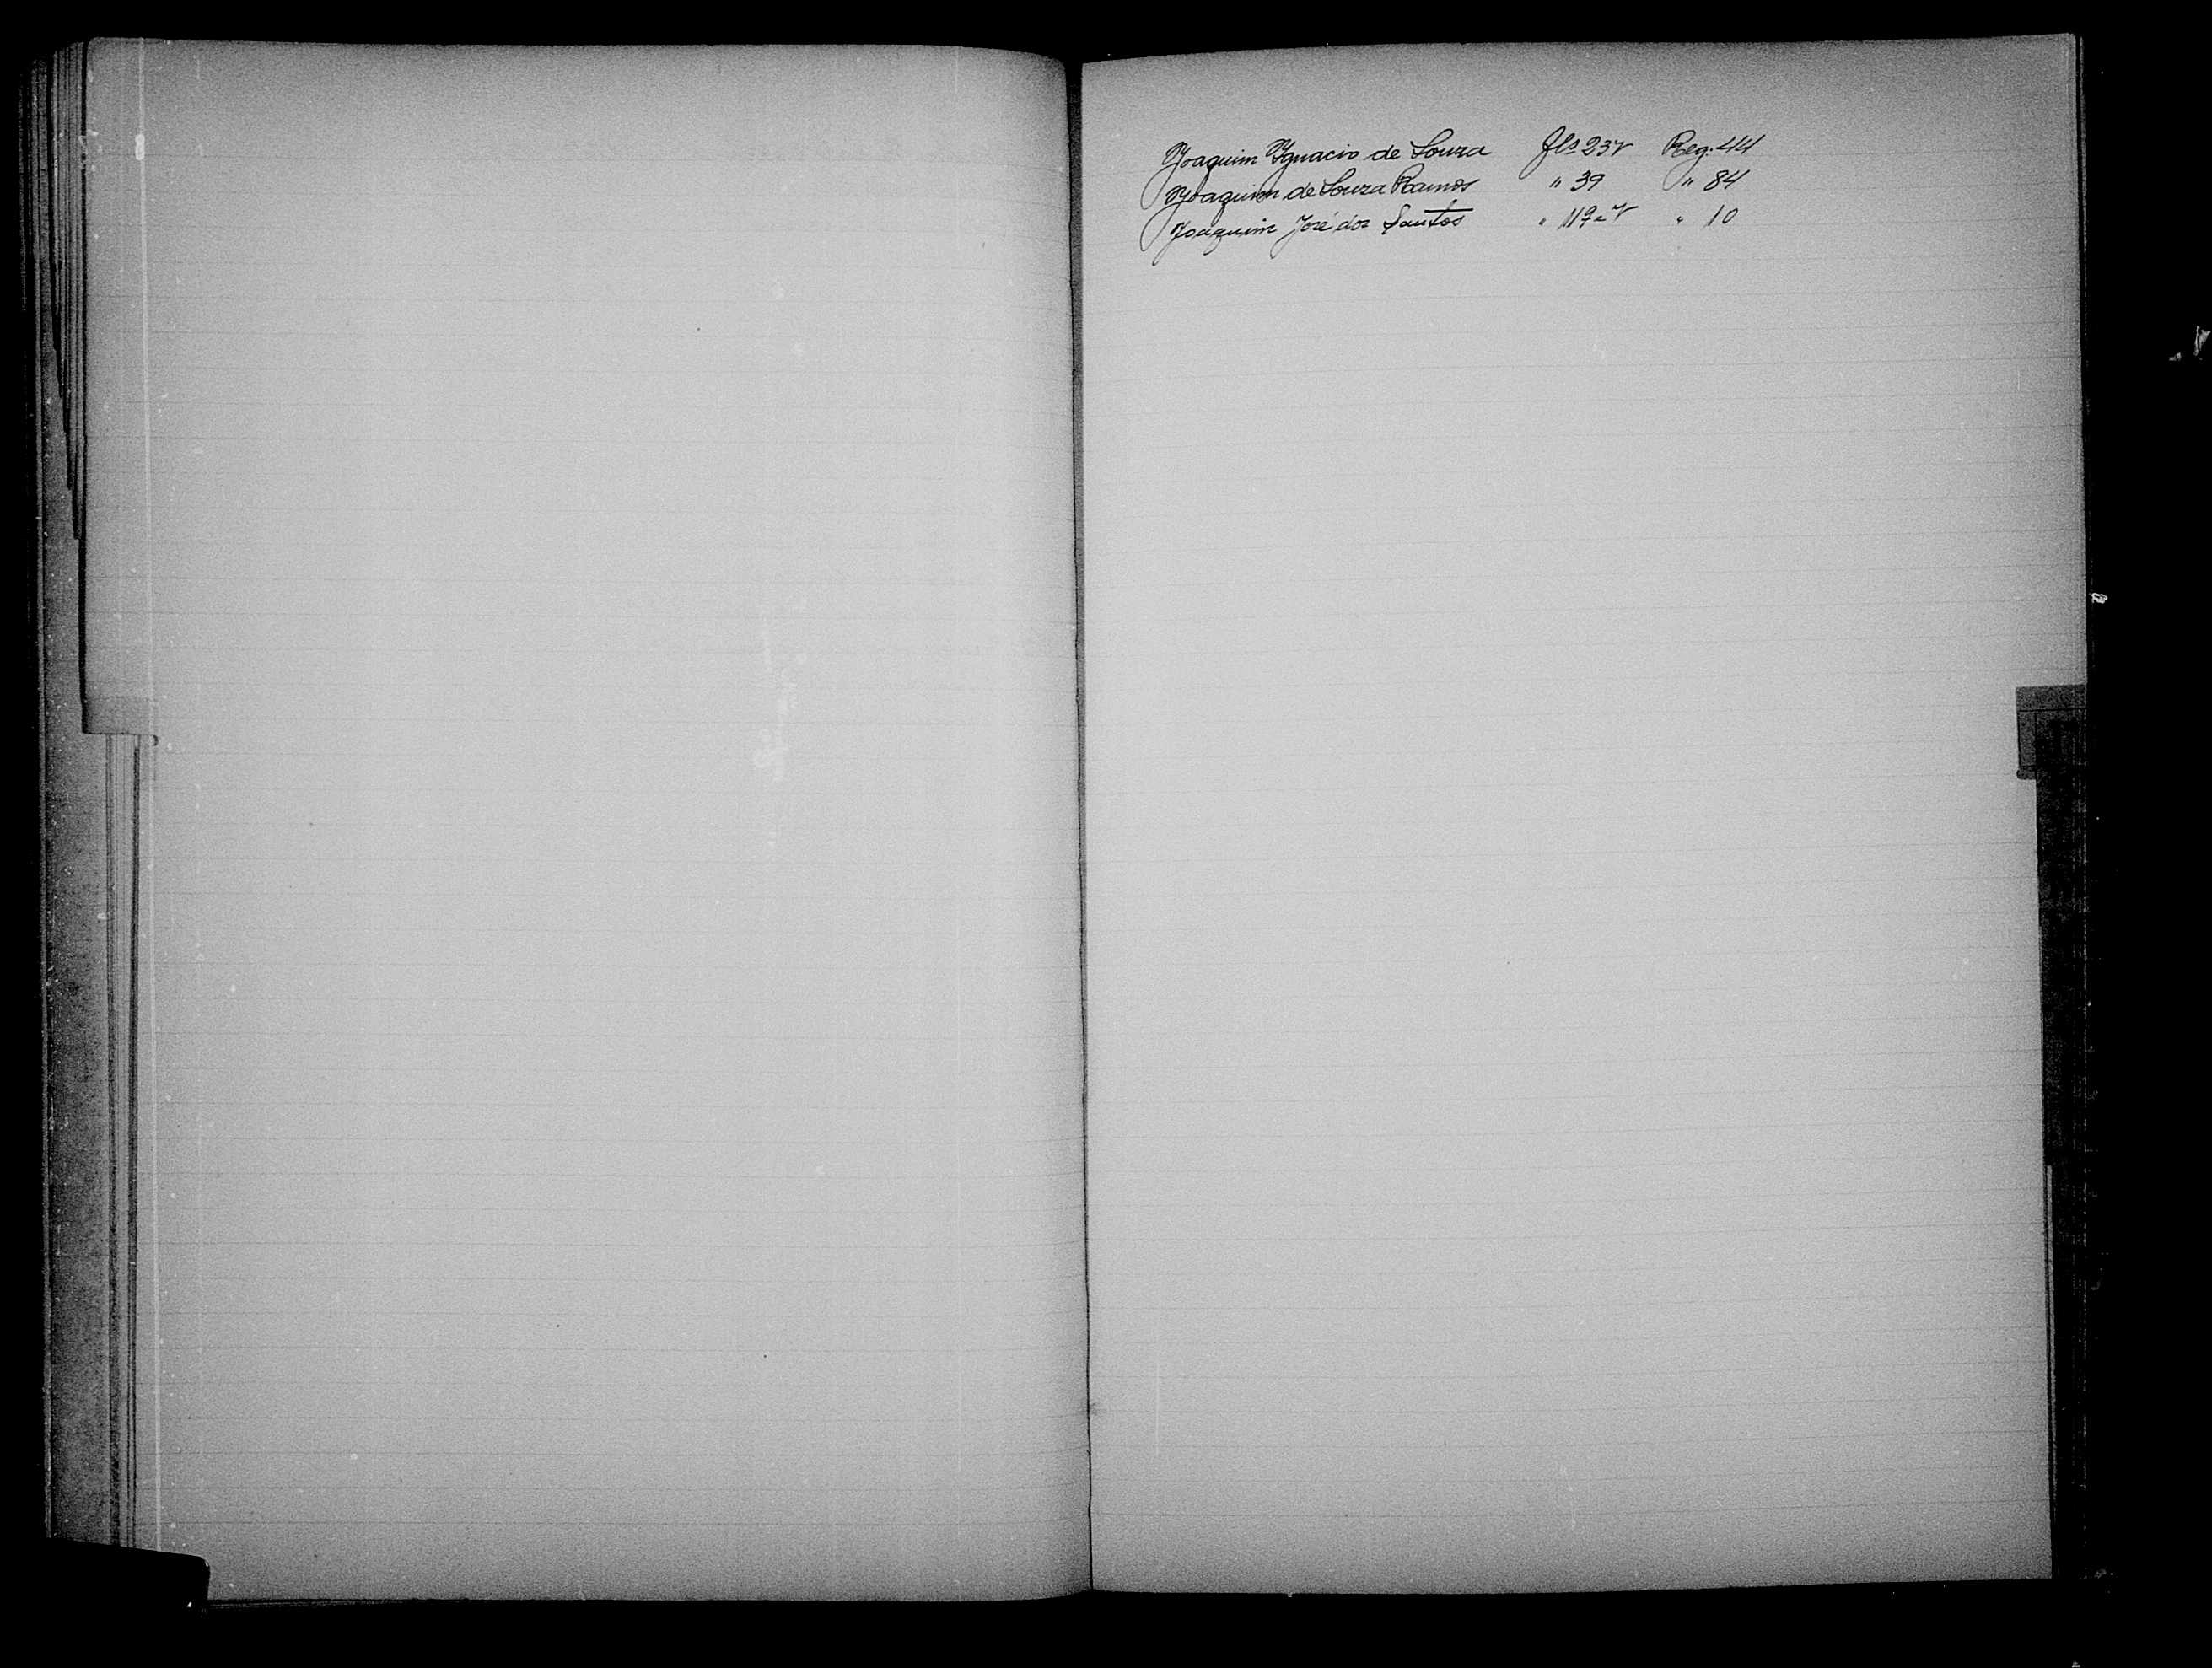 Joaquim Ignacio de Souza Fls 23v Reg. 44
Joaquim de Souza Ramos " 39 " 84
Joaquim José dos Santos " 119-v " 10